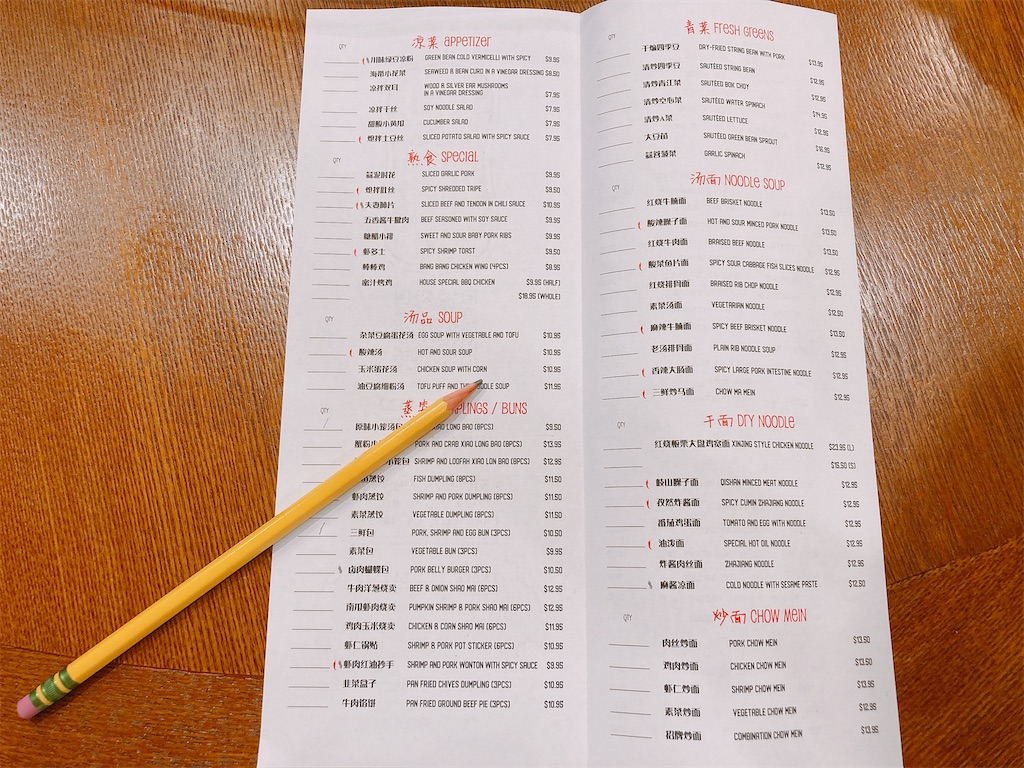 凉菜 APPETIZER
QTY
川味绿豆凉粉 GREEN BEAN COLD VERMICELLI WITH SPICY $9.95
海带小花菜 SEAWEED & BEAN CURD IN A VINEGAR DRESSING $8.50
凉拌双耳 WOOD & SILVER EAR MUSHROOMS
IN A VINEGAR DRESSING $7.95
凉拌干丝 SOY NOODLE SALAD $7.95
甜酸小黄瓜 CUCUMBER SALAD $7.95
炝拌土豆丝 SLICED POTATO SALAD WITH SPICY SAUCE $7.95
熟食 SPECIAL
QTY
蒜泥肘花 SLICED GARLIC PORK $9.95
炝拌肚丝 SPICY SHREDDED TRIPE $9.50
夫妻肺片 SLICED BEEF AND TENDON IN CHILI SAUCE $10.95
五香酱牛腱肉 BEEF SERSONED WITH SOY SAUCE $9.95
糖醋小排 SWEET AND SOUR BABY PORK RIBS $9.95
虾多士 SPICY SHRIMP TORST $9.50
棒棒鸡 BANG BANG CHICKEN WING (4PCS) $8.95
蜜汁烤鸡 HOUSE SPECIAL BBQ CHICKEN $9.95 (HALF)
$18.95 (WHOLE)
汤品 SOUP
QTY
杂菜豆腐蛋花汤 EGG SOUP WITH VEGETABLE AND TOFU $10.95
酸辣汤 HOT AND SOUR SOUP $10.95
玉米蛋花汤 CHICKEN SOUP WITH CORN $10.95
油豆腐细粉汤 TOFU PUFF AND NOODLE SOUP $11.95
蒸 DUMPLINGS / BUNS
QTY
原味小笼汤包 XIAO LONG BAO (8PCS) $9.50
蟹粉小 PORK AND CRAB XIAO LONG BAO (8PCS) $13.95
小笼包 SHRIMP AND LOOFAH XIAO LON BAO (8PCS) $12.95
鱼蒸饺 FISH DUMPLING (8PCS) $11.50
虾肉蒸饺 SHRIMP AND PORK DUMPLING (8PCS) $11.50
素菜蒸饺 VEGETABLE DUMPLING (8PCS) $11.50
三鲜包 PORK, SHRIMP AND EGG BUN (3PCS) $10.50
素菜包 VEGETABLE BUN (3PCS) $9.95
卤肉蝴蝶包 PORK BELLY BURGER (3PCS) $10.50
牛肉洋葱烧卖 BEEF & ONION SHAO MAI (6PCS) $12.95
南瓜虾肉烧卖 PUMPKIN SHRIMP & PORK SHAO MAI (6PCS) $12.95
鸡肉玉米烧卖 CHICKEN & CORN SHAO MAI (6PCS) $11.95
虾仁锅贴 SHRIMP & PORK POT STICKER (6PCS) $10.95
虾肉红油抄手 SHRIMP AND PORK WONTON WITH SPICY SAUCE $9.95
韭菜盒子 PAN FRIED CHIVES DUMPLING (3PCS) $10.95
牛肉馅饼 PAN FRIED GROUND BEEF PIE (3PCS) $10.95
青菜 FRESH GREENS
QTY
干煸四季豆 DRY-FRIED STRING BEAN WITH PORK $13.95
清炒四季豆 SAUTÉED STRING BEAN $12.95
清炒青江菜 SAUTÉED BOK CHOY $12.95
清炒空心菜 SAUTÉED WATER SPINACH $14.95
清炒A菜 SAUTÉED LETTUCE $12.95
大豆苗 SAUTÉED GREEN BEAN SPROUT $16.95
蒜蓉菠菜 GARLIC SPINACH $12.95
汤面 NOODLE SOUP
QTY
红烧牛腩面 BEEF BRISKET NOODLE $13.50
酸辣臊子面 HOT AND SOUR MINCED PORK NOODLE $13.50
红烧牛肉面 BRAISED BEEF NOODLE $13.50
酸菜鱼片面 SPICY SOUR CABBAGE FISH SLICES NOODLE $12.95
红烧排骨面 BRAISED RIB CHOP NOODLE $12.95
素菜汤面 VEGETARIAN NOODLE $12.50
麻辣牛腩面 SPICY BEEF BRISKET NOODLE $13.50
老汤排骨面 PLAIN RIB NOODLE SOUP $12.95
香辣大肠面 SPICY LARGE PORK INTESTINE NOODLE $12.95
三鲜炒马面 CHOW MA MEIN $12.95
干面 DRY NOODLE
QTY
红烧板栗大盘鸡宽面 XINJING STYLE CHICKEN NOODLE $23.95 (L)
$15.50 (S)
岐山臊子面 QISHAN MINCED MEAT NOODLE $12.95
孜然炸酱面 SPICY CUMIN ZHAJIANG NOODLE $12.95
番茄鸡蛋面 TOMATO AND EGG WITH NOODLE $12.95
油泼面 SPECIAL HOT OIL NOODLE $12.95
炸酱肉丝面 ZHAJIANG NOODLE $12.95
麻酱凉面 COLD NOODLE WITH SESAME PASTE $12.50
炒面 CHOW MEIN
QTY
肉丝炒面 PORK CHOW MEIN $13.50
鸡肉炒面 CHICKEN CHOW MEIN $13.50
虾仁炒面 SHRIMP CHOW MEIN $13.95
素菜炒面 VEGETABLE CHOW MEIN $12.95
招牌炒面 COMBINATION CHOW MEIN $13.95